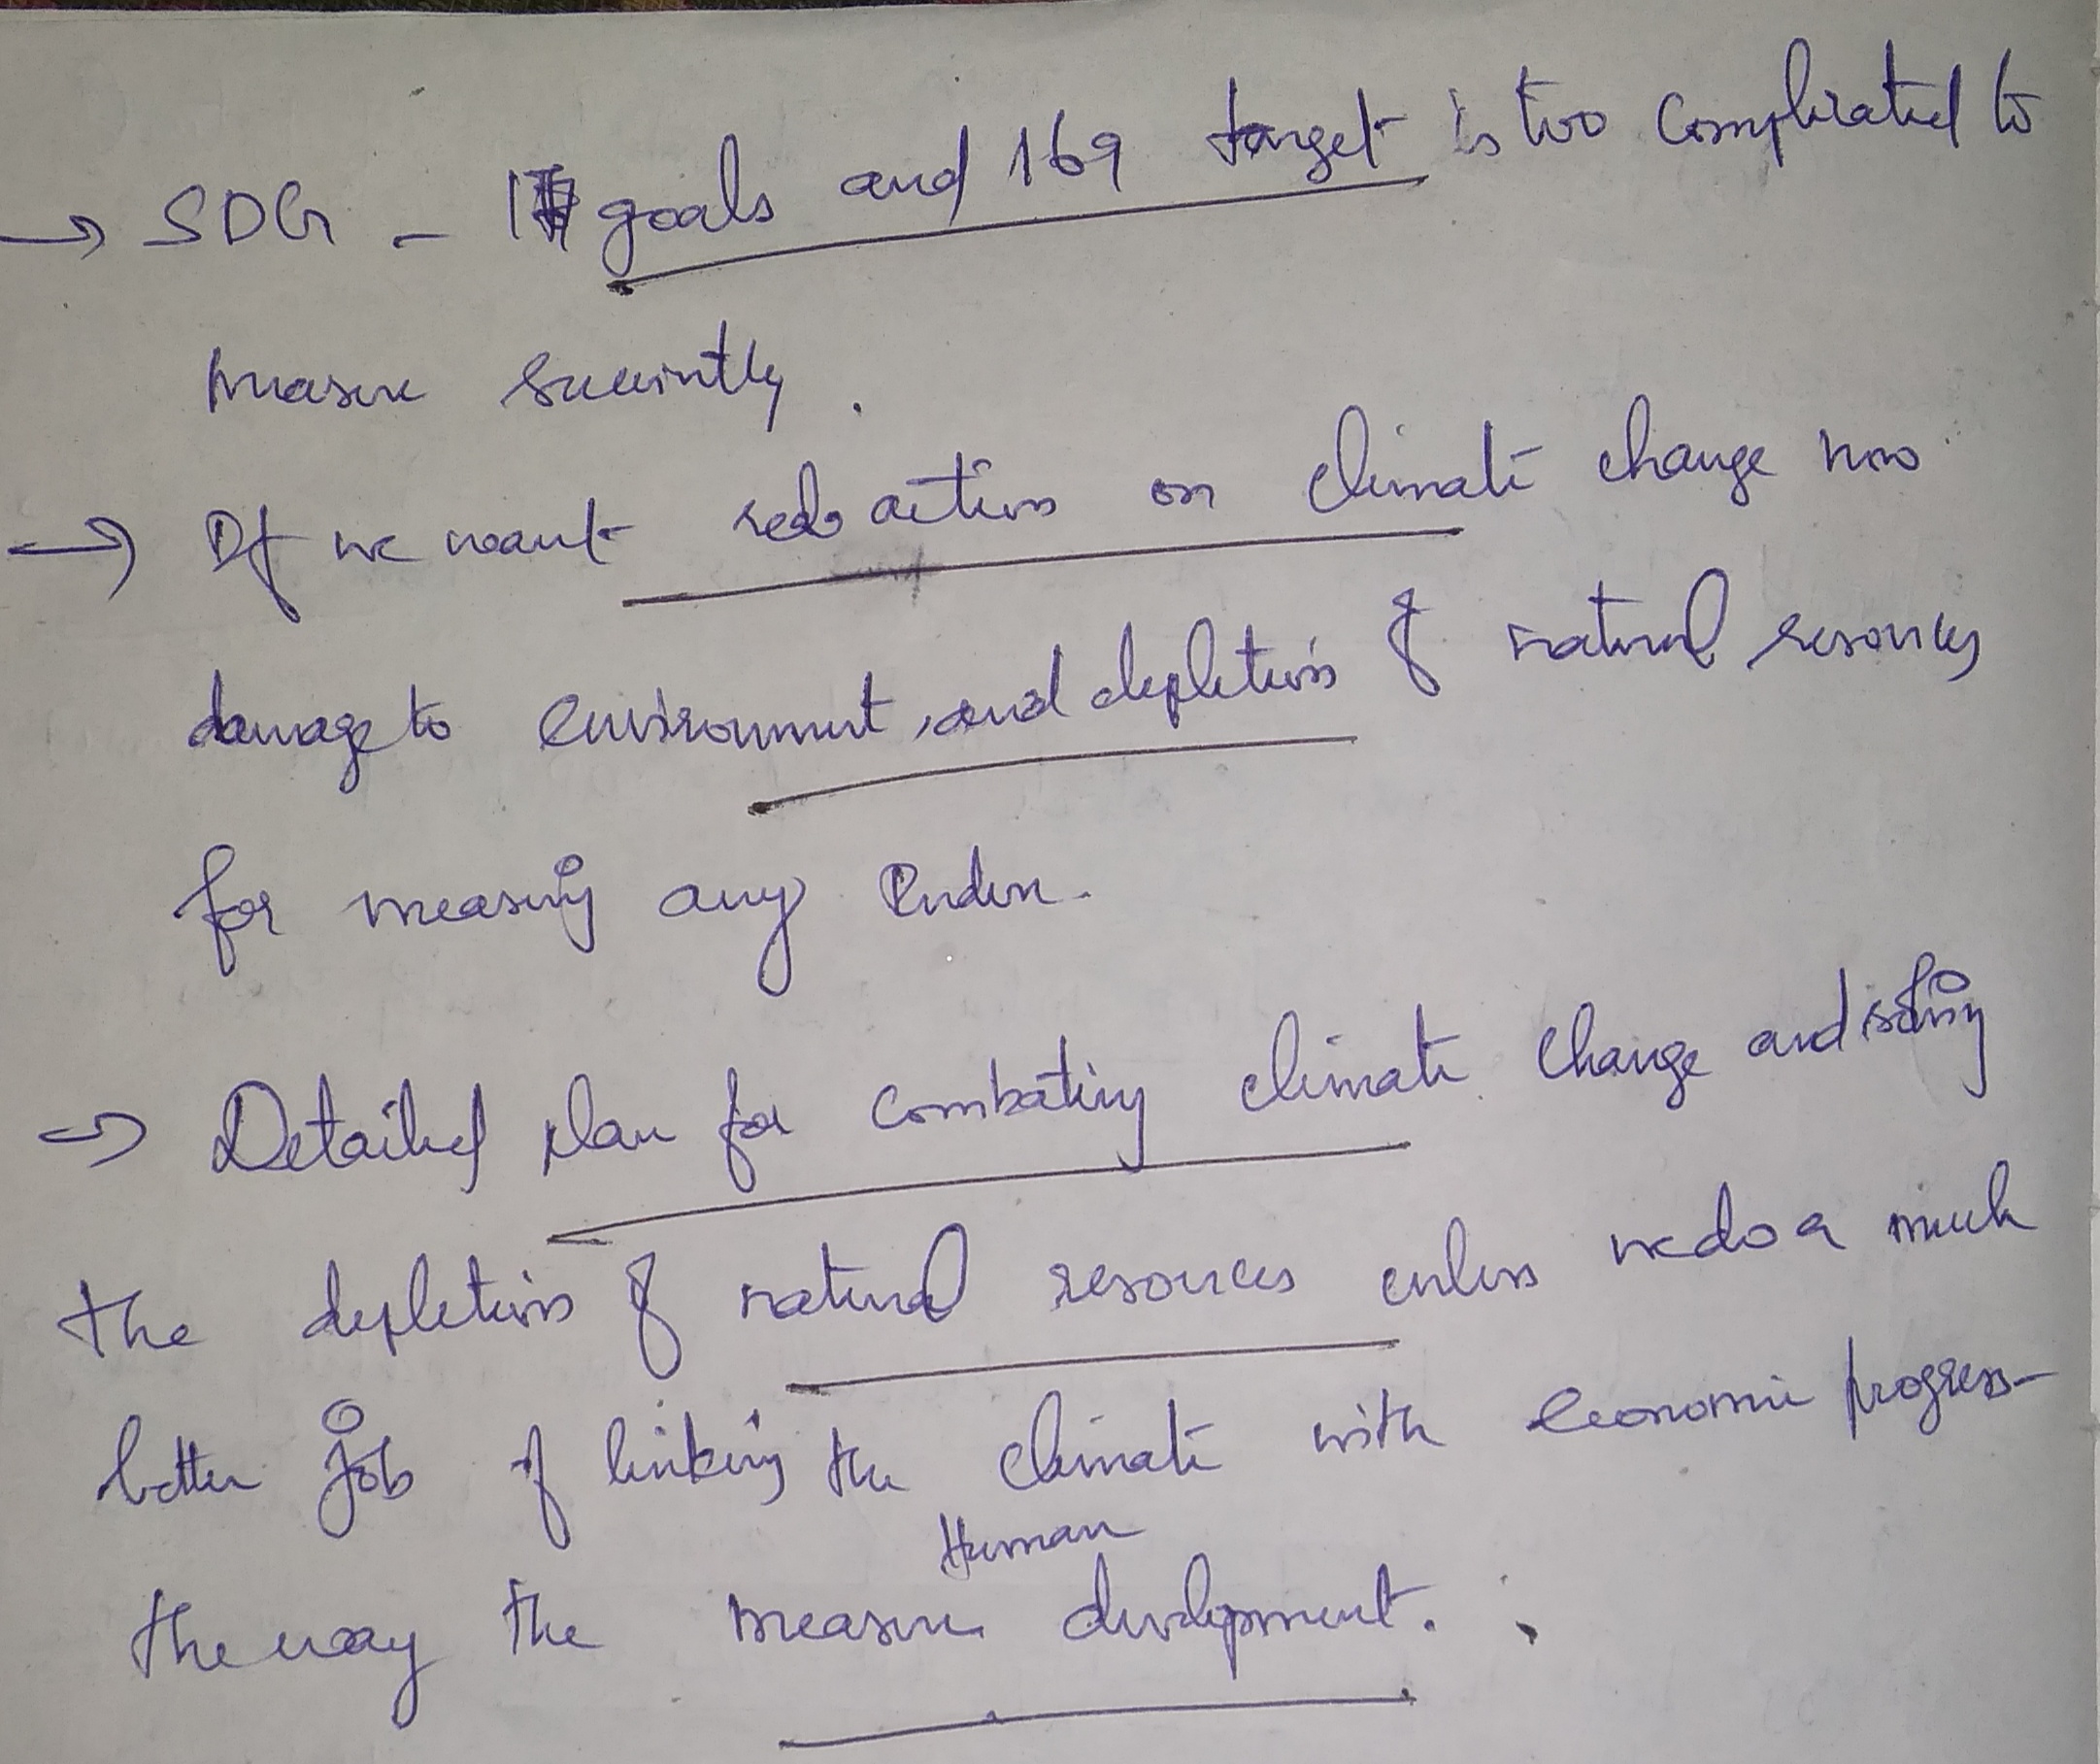 → SDG - 17 goals and 169 target is too complicated to
measure succintly.
→ If we want action on climate change now
damage to environment, and depletion of natural resources
for measuring any Index.
→ Detailed plan for combating climate change and
the depletion of natural resources unless we do a much
better job of linking the climate with economic progress-
Human
the way the measure development.